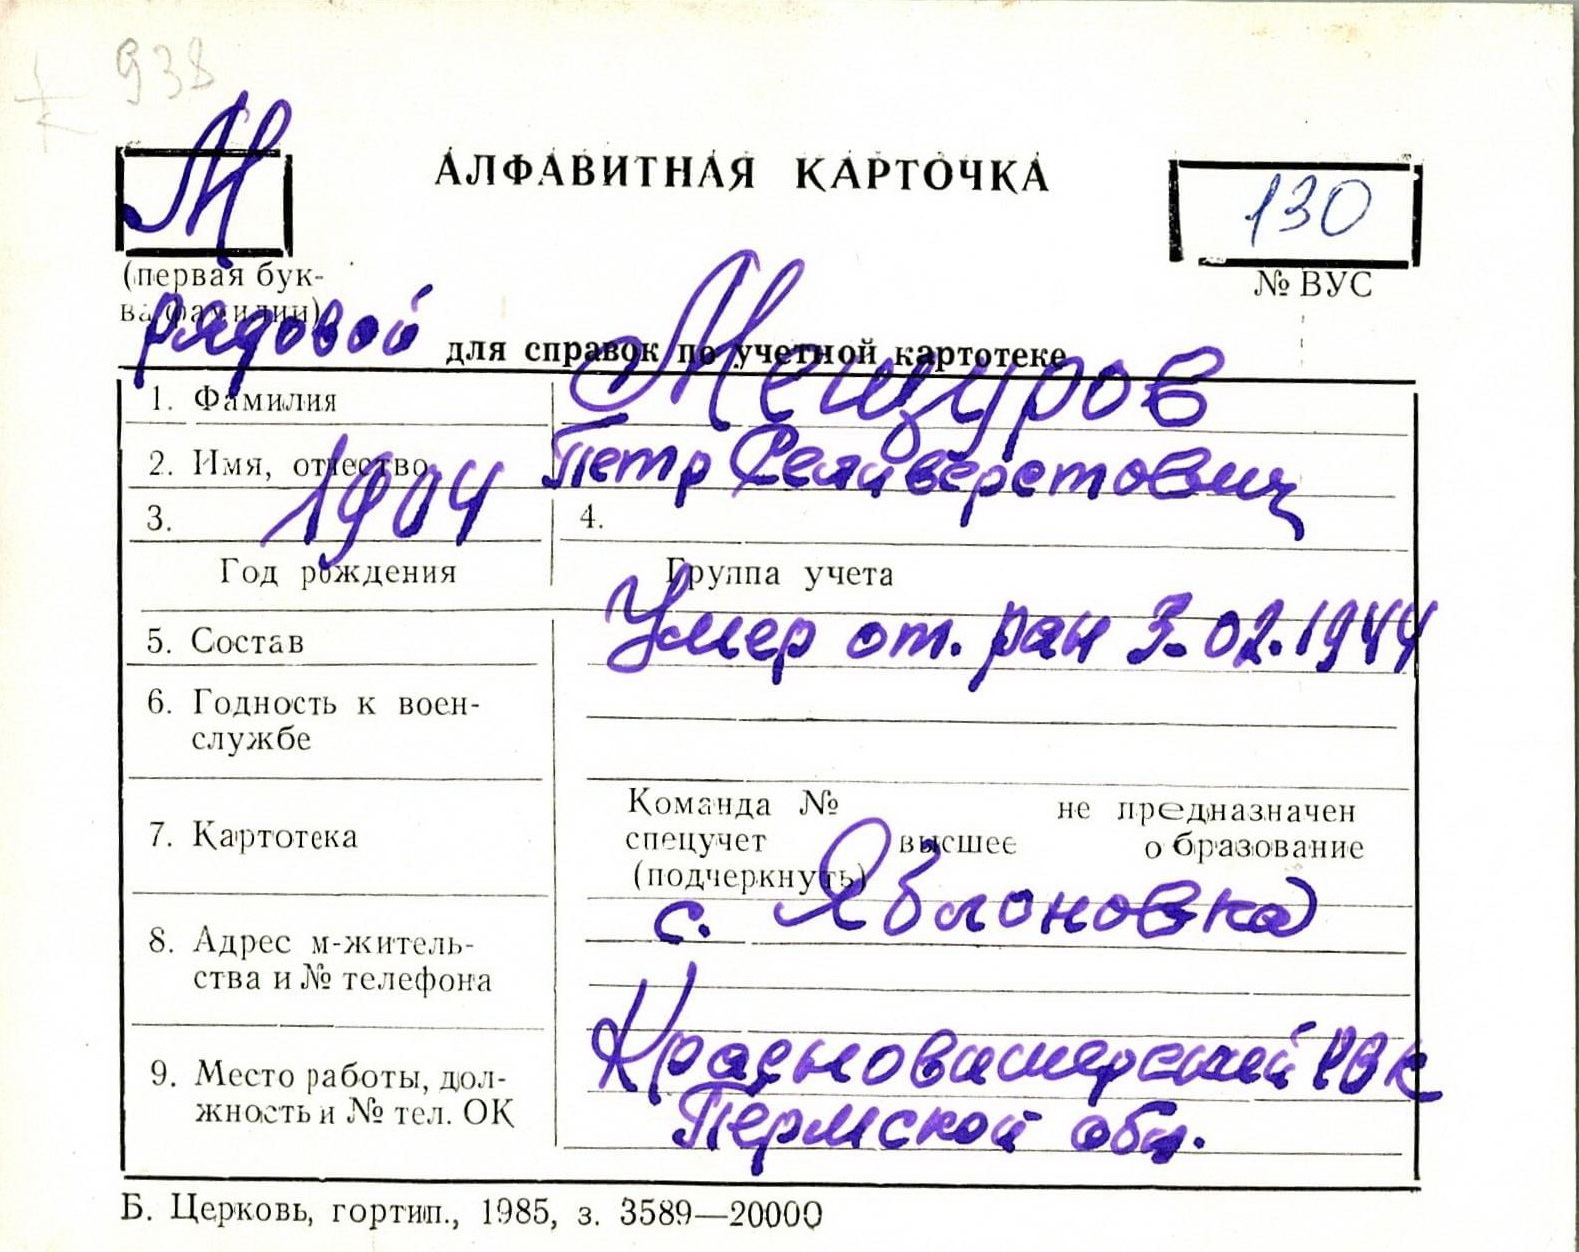 938
М
АЛФАВИТНАЯ КАРТОЧКА
130
(первая бук-
ва фамилии)
№ ВУС
рядовой
для справок по учетной картотеке
1. Фамилия
Мещуров
2. Имя, отчество
Петр Селиверстович
3. 1904
4.
Год рождения
Группа учета
5. Состав
Умер от. ран 3.02.1944
6. Годность к воен-
службе
7. Картотека
Команда № не предназначен
спецучет высшее образование
(подчеркнуть)
с. Яблоновка
8. Адрес м-житель-
ства и № телефона
9. Место работы, дол-
жность и № тел. ОК
РВК
Пермской обл.
Б. Церковь, гортип., 1985, з. 3589—20000